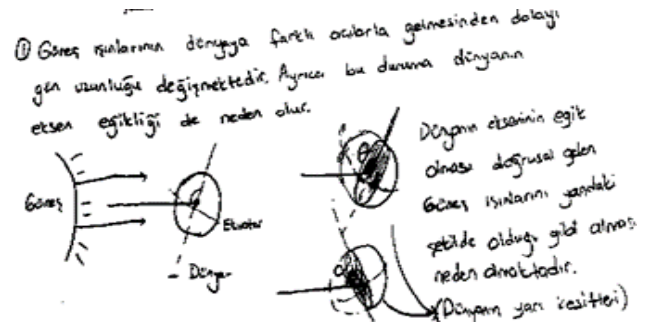 ① Güneş ışınlarının dünyaya farklı açılarla gelmesinden dolayı
gün uzunluğu değişmektedir. Ayrıca bu duruma dünyanın
eksen eğikliği de neden olur.
Güneş
Ekvator
Dünya
Dünyanın ekseninin eğik
olması doğrusal gelen
Güneş ışınlarını yandaki
şekilde olduğu gibi alması
neden olmaktadır.
(Dünyanın yarı kesitleri)